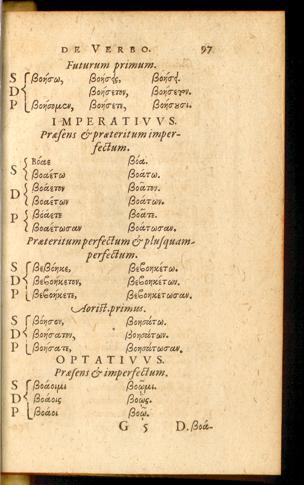 DE VERBO. 97
Futurum primum.
S βοήσω, βοήσῃς, βοήσῃ.
D βοήσετον, βοήσετον.
P βοήσομεν, βοήσετε, βοήσουσι.
IMPERATIVVS.
Præsens & præteritum imper-
fectum.
S Βόαε βόα.
βοαέτω βοάτω.
D βοάετον βοᾶτον.
βοαέτων βοάτων.
P βοάετε βοᾶτε.
βοαέτωσαν βοάτωσαν.
Præteritum perfectum & plusquam-
perfectum.
S βεβόηκε, βεβοηκέτω.
D βεβοήκετον, βεβοηκέτων.
P βεβοήκετε, βεβοηκέτωσαν.
Aorist. primus.
S βόησον, βοησάτω.
D βοήσατον, βοησάτων.
P βοήσατε, βοησάτωσαν.
OPTATIVVS.
Præsens & imperfectum.
S βοάοιμι βοῷμι.
D βοάοις βοῷς.
P βοάοι βοῷ.
G 5 D. βοά-